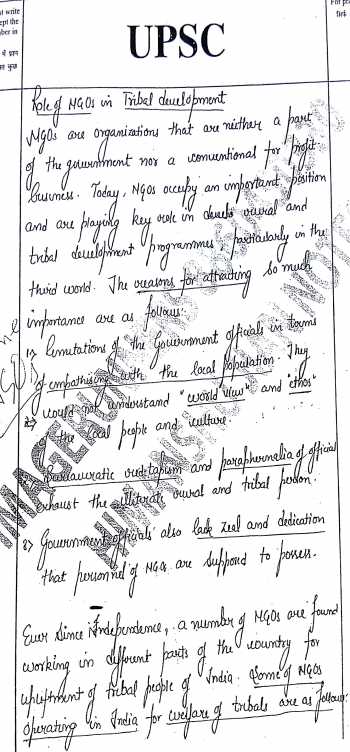 UPSC
Role of NGOs in Tribal development
NGOs are organizations that are neither a part
of the government nor a conventional for profit
business. Today, NGOs occupy an important position
and are playing key role in rural and
tribal development programmes, particularly in the
third world. The reasons for attracting so much
importance are as follows:
1) Limitations of the Government officials in terms
of empathising with the local population. They
would not understand "world view" and "ethos"
of the local people and culture.
2) Bureaucratic red-tapism and paraphernalia of official
exhaust the illiterate rural and tribal person.
3) Government officials also lack zeal and dedication
that personnel of NGOs are supposed to possess.
Ever since Independence, a number of NGOs are found
working in different parts of the country for
upliftment of tribal people of India. Some of NGOs
operating in India for welfare of tribals are as follows: